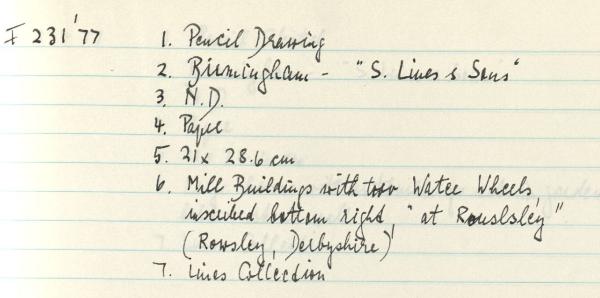 F 231'77 1. Pencil Drawing
2. Birmingham - "S. Lines & Sons"
3. N.D.
4. Paper
5. 21 x 28.6 cm
6. Mill Buildings with two Water Wheels,
inscribed bottom right, "at Rouslsley"
(Rowsley, Derbyshire)
7. Lines Collection